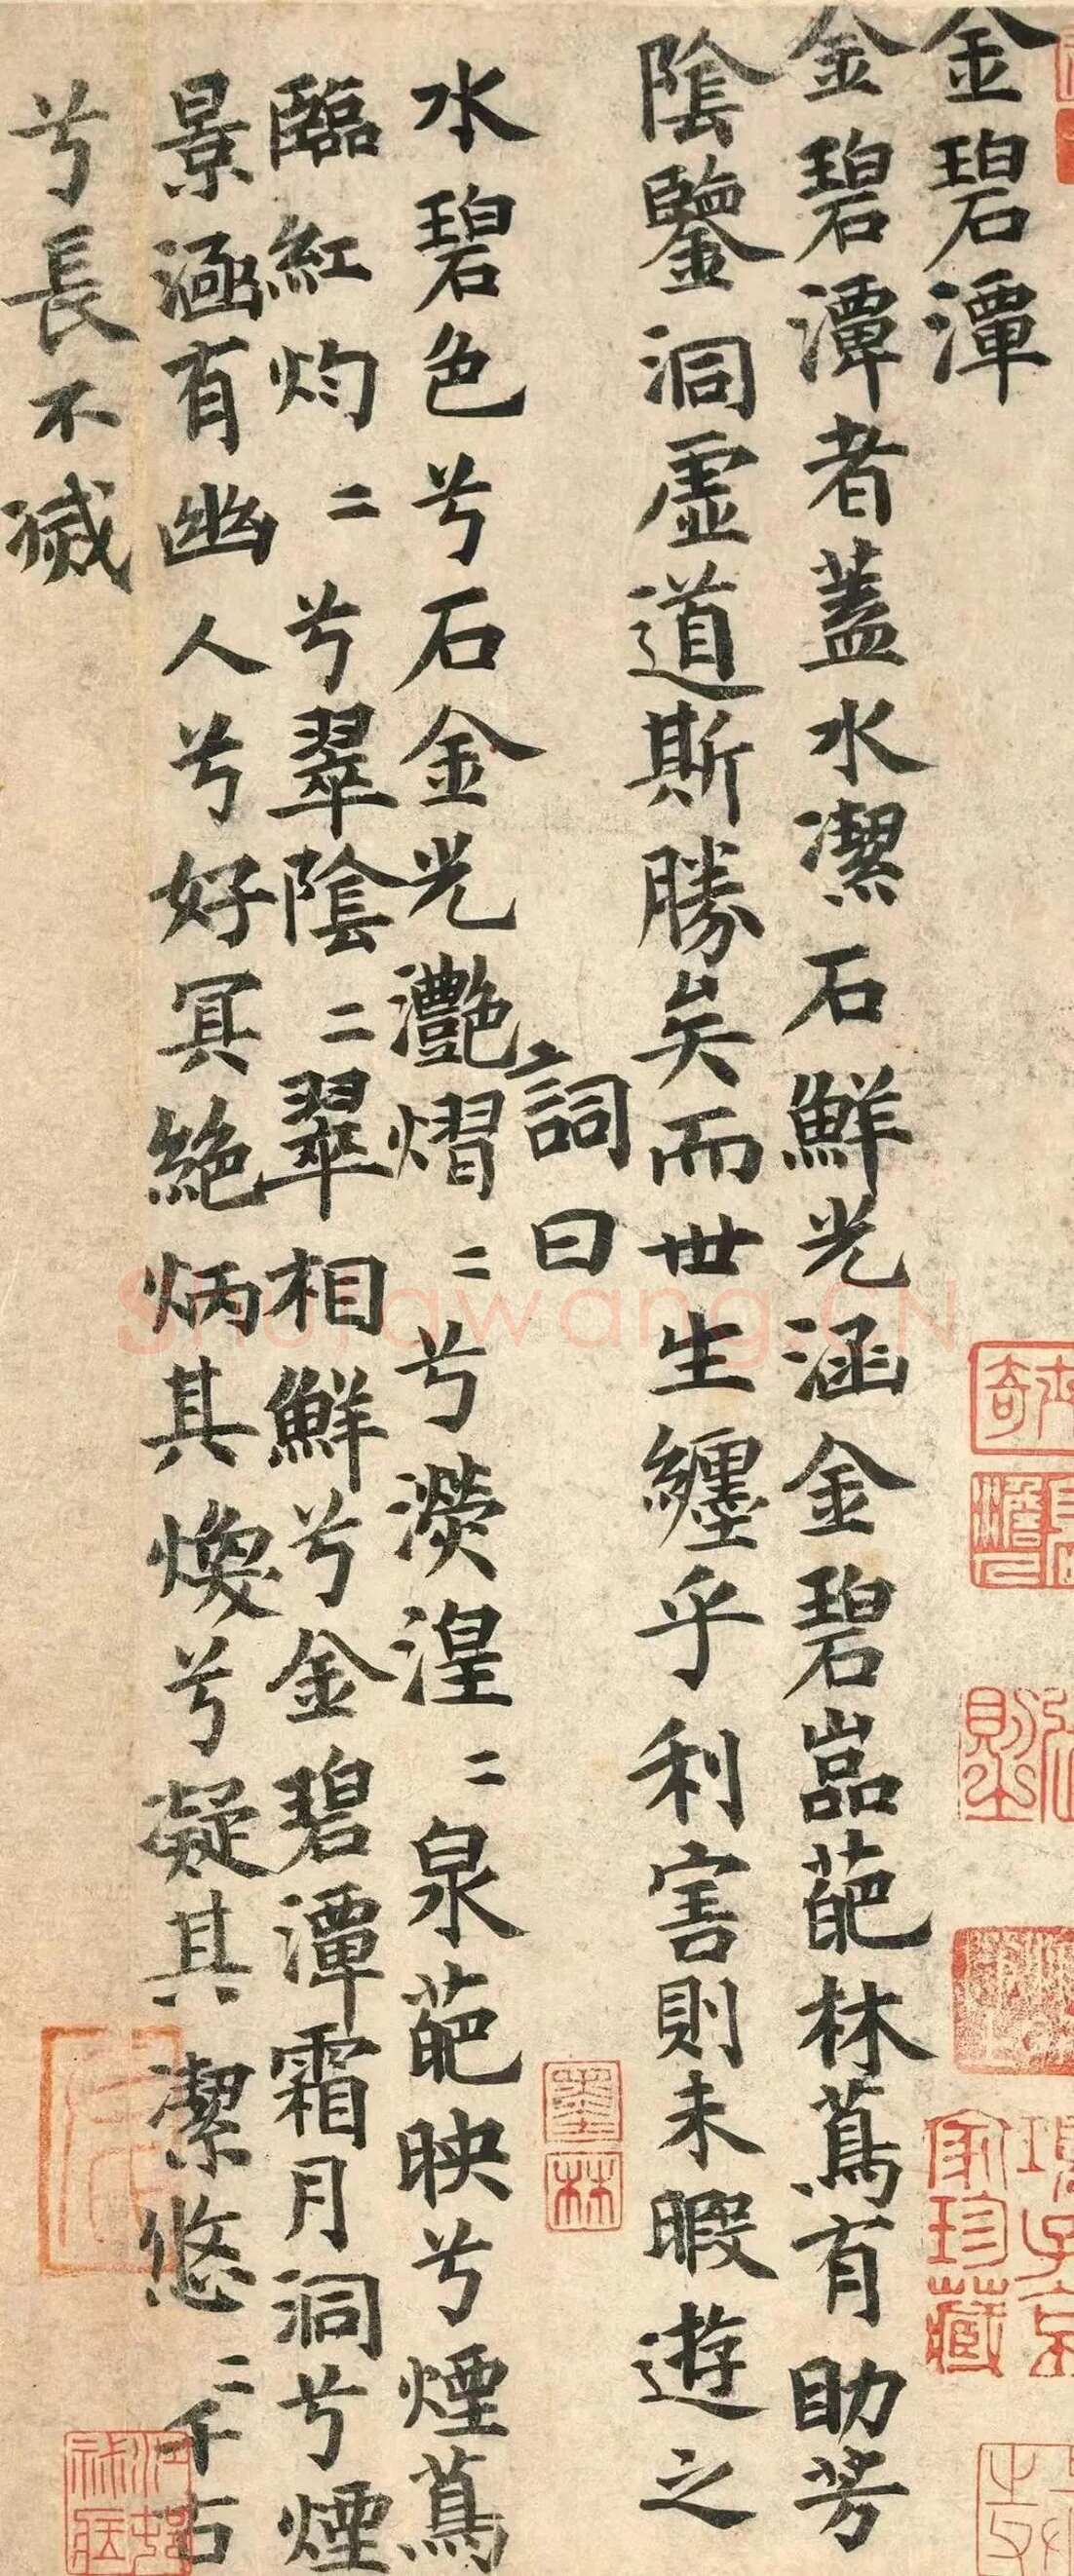 金碧潭
金碧潭者蓋水潔石鮮光涵金碧嵓葩林蔦有助芳
陰鑒洞虛道斯勝矣而世生纏乎利害則未暇遊之
詞曰
水碧色兮石金光灔熠二兮濙湟二泉葩映兮煙蔦
臨紅灼二兮翠陰二翠相鮮兮金碧潭霜月洞兮煙
景涵有幽人兮好冥絕炳其煥兮凝其潔悠二千古
兮長不滅
墨林
項子京家珍藏